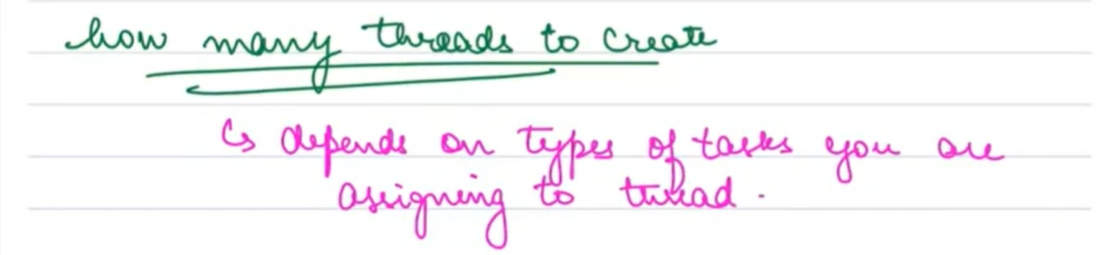 how many threads to create
↳ depends on types of tasks you are
assigning to thread.